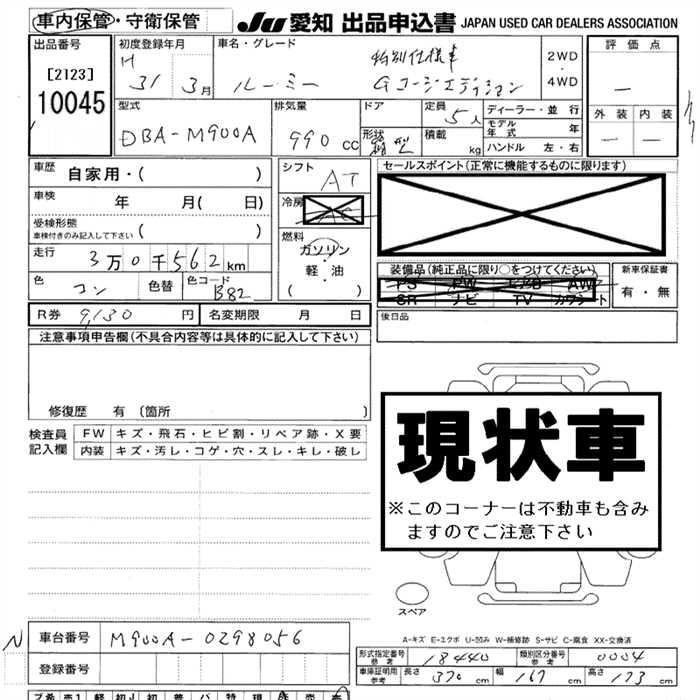 車内保管・守衛保管 JU 愛知 出品申込書 JAPAN USED CAR DEALERS ASSOCIATION
出品番号 [2123] 10045
初度登録年月 H 31 3月
車名・グレード ルーミー 特別仕様車 Gコージーエディション
2WD ・ 4WD
評価点 －
外装 内装
－ －
型式 DBA-M900A
排気量 990 cc
ドア 形状
定員 5人
積載 kg
ディーラー・並行
モデル年式 年
ハンドル 左・右
車歴 自家用・( )
車検 年 月( 日)
受検形態 車検付きのみ記入して下さい ( )
走行 3万0千562km
色 コン 色替 色コード B82
シフト AT
冷房 AC
燃料 ガソリン・軽・油 ( )
セールスポイント(正常に機能するものに限ります)
装備品(純正品に限り○をつけてください)
PS PW エアB AW
SR ナビ TV カワシート
新車保証書 有・無
後日品
R券 9,130 円 名変期限 月 日
注意事項申告欄(不具合内容等は具体的に記入して下さい)
修復歴 有 〔箇所 〕
検査員記入欄 FW キズ・飛石・ヒビ割・リペア跡・X要
内装 キズ・汚レ・コゲ・穴・スレ・キレ・破レ
現状車
※このコーナーは不動車も含み
ますのでご注意下さい
スペア
A-キズ E-エクボ U-凹み W-補修跡 S-サビ C-腐食 XX-交換済
N 車台番号 M900A-0298056
登録番号
形式指定番号 参考 18440 類別区分番号 参考 0004
車庫証明用 参考 長さ 370cm 幅 167cm 高さ 173cm